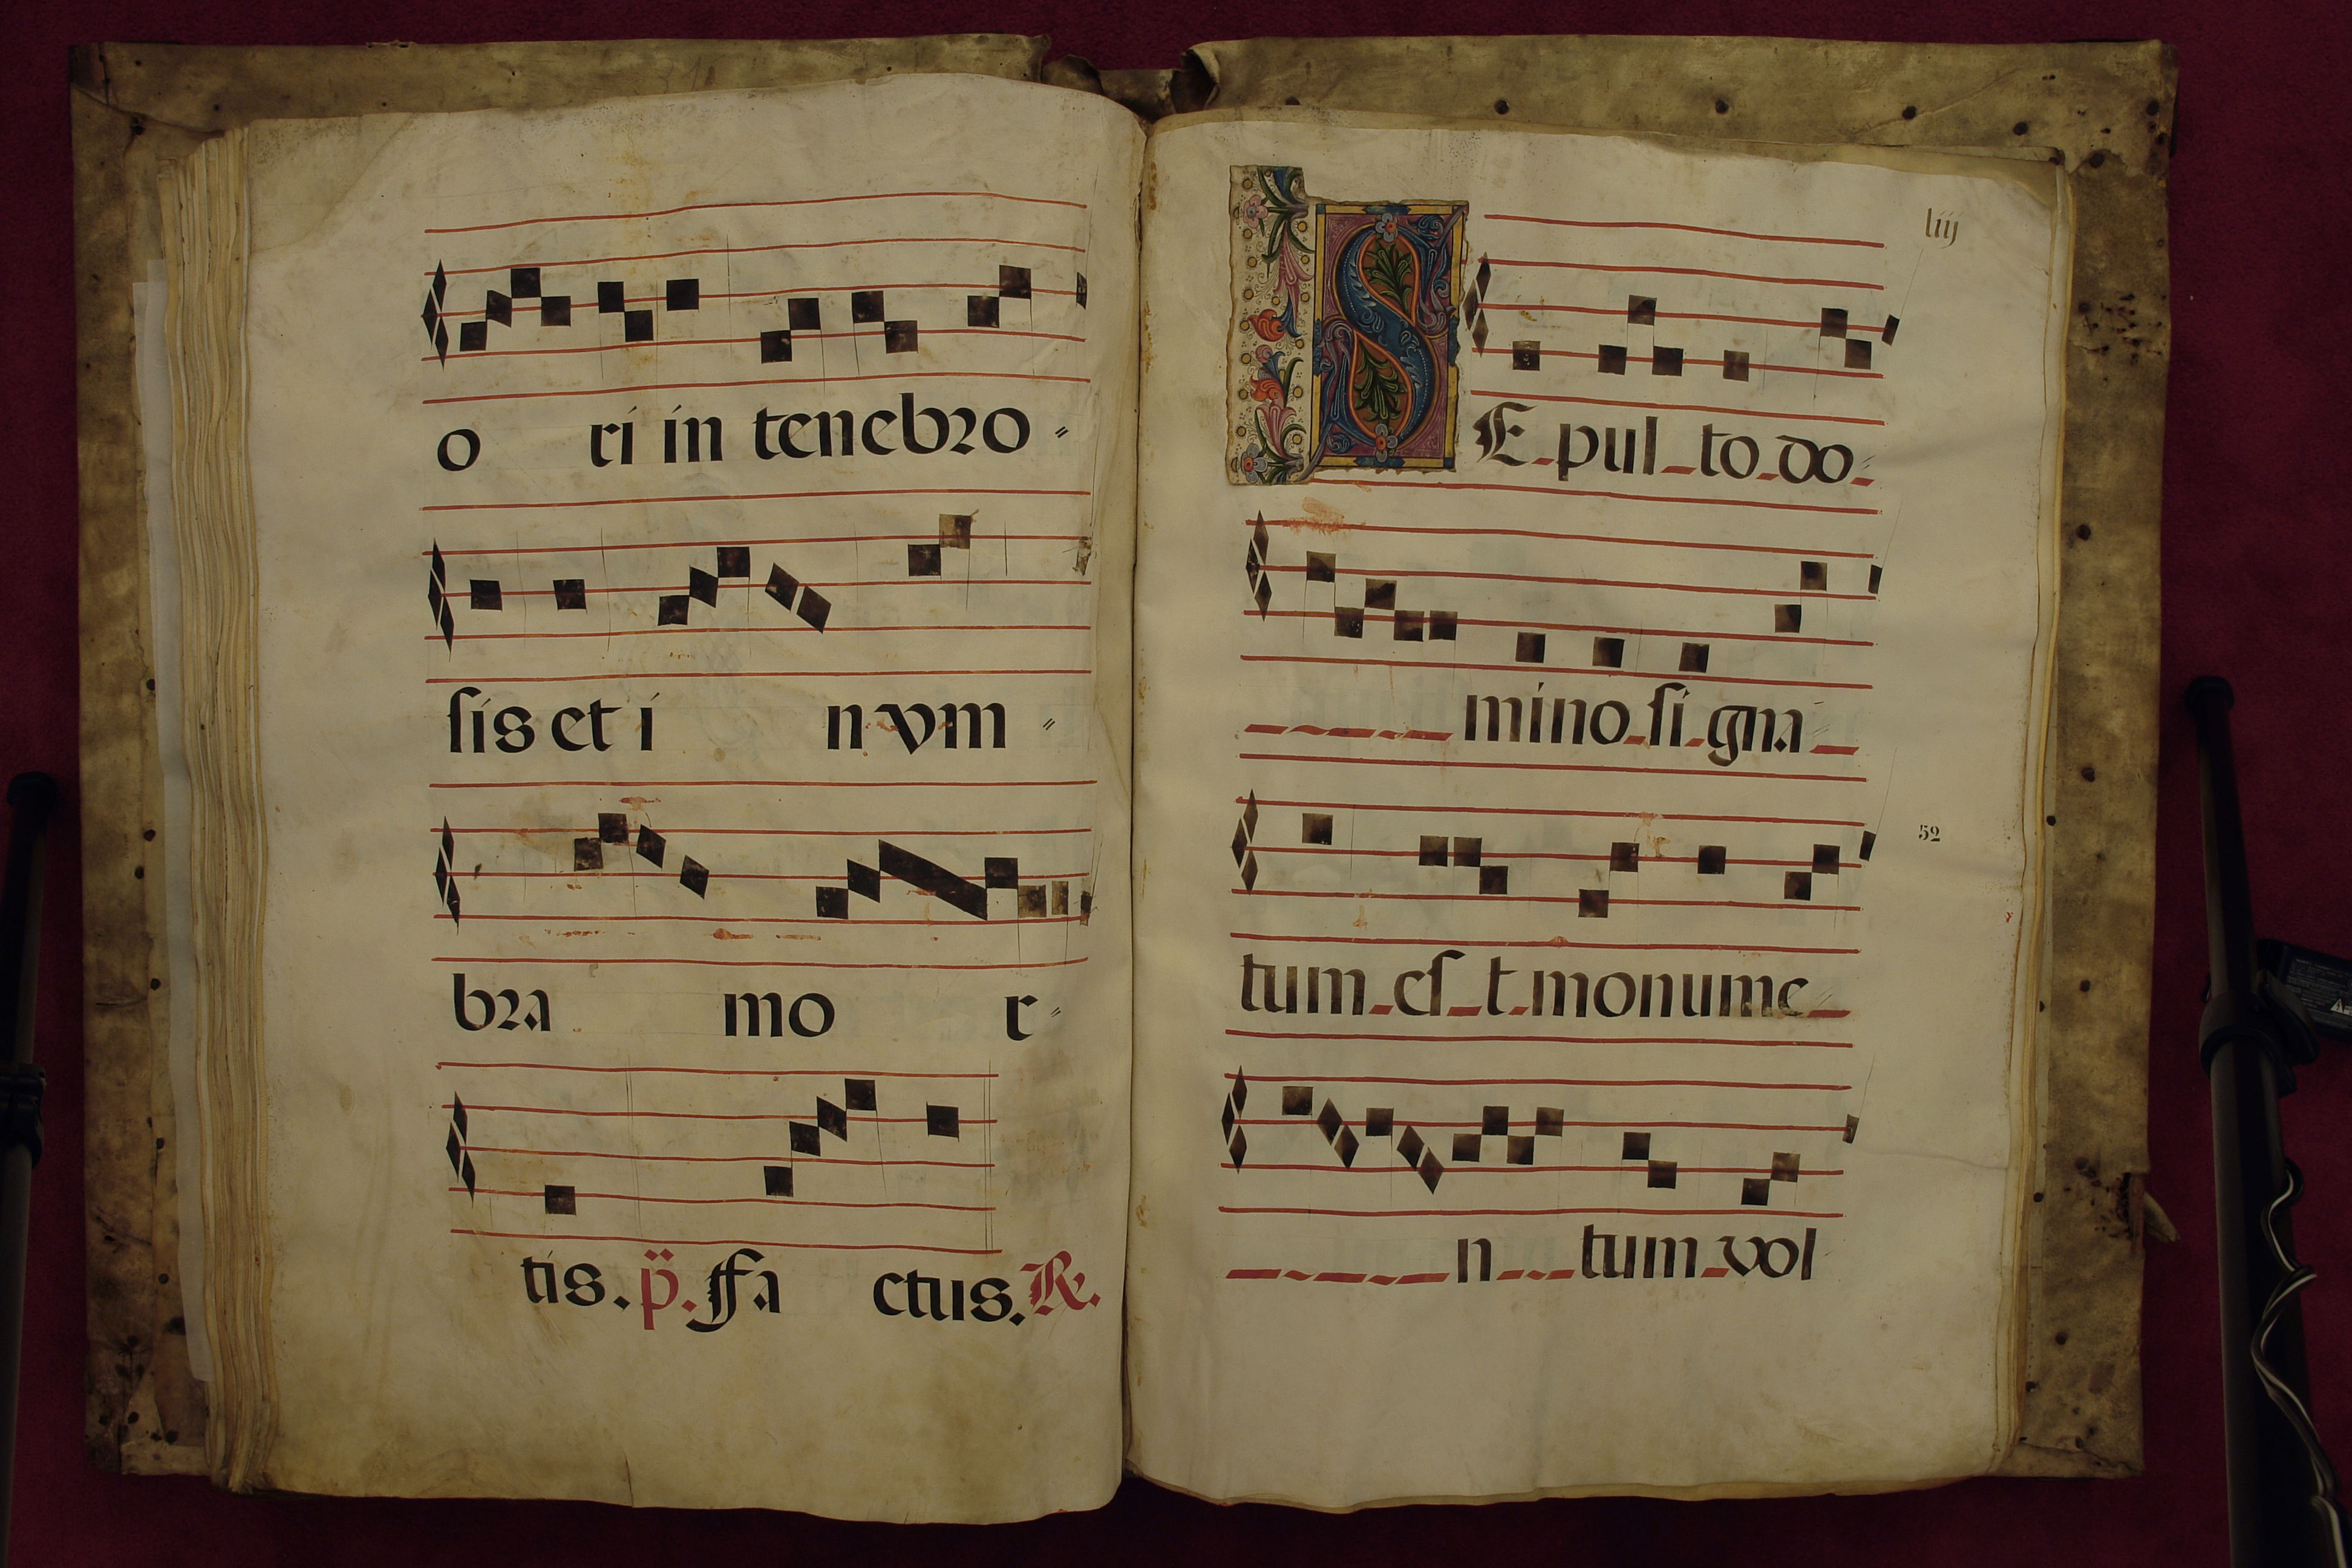 o ri in tenebro
sis et i n vm
bra mo r
tis. p̈. Fa ctus. R.
liij
SE pul to do
mino si gna
52
tum es t monume
n tum vol